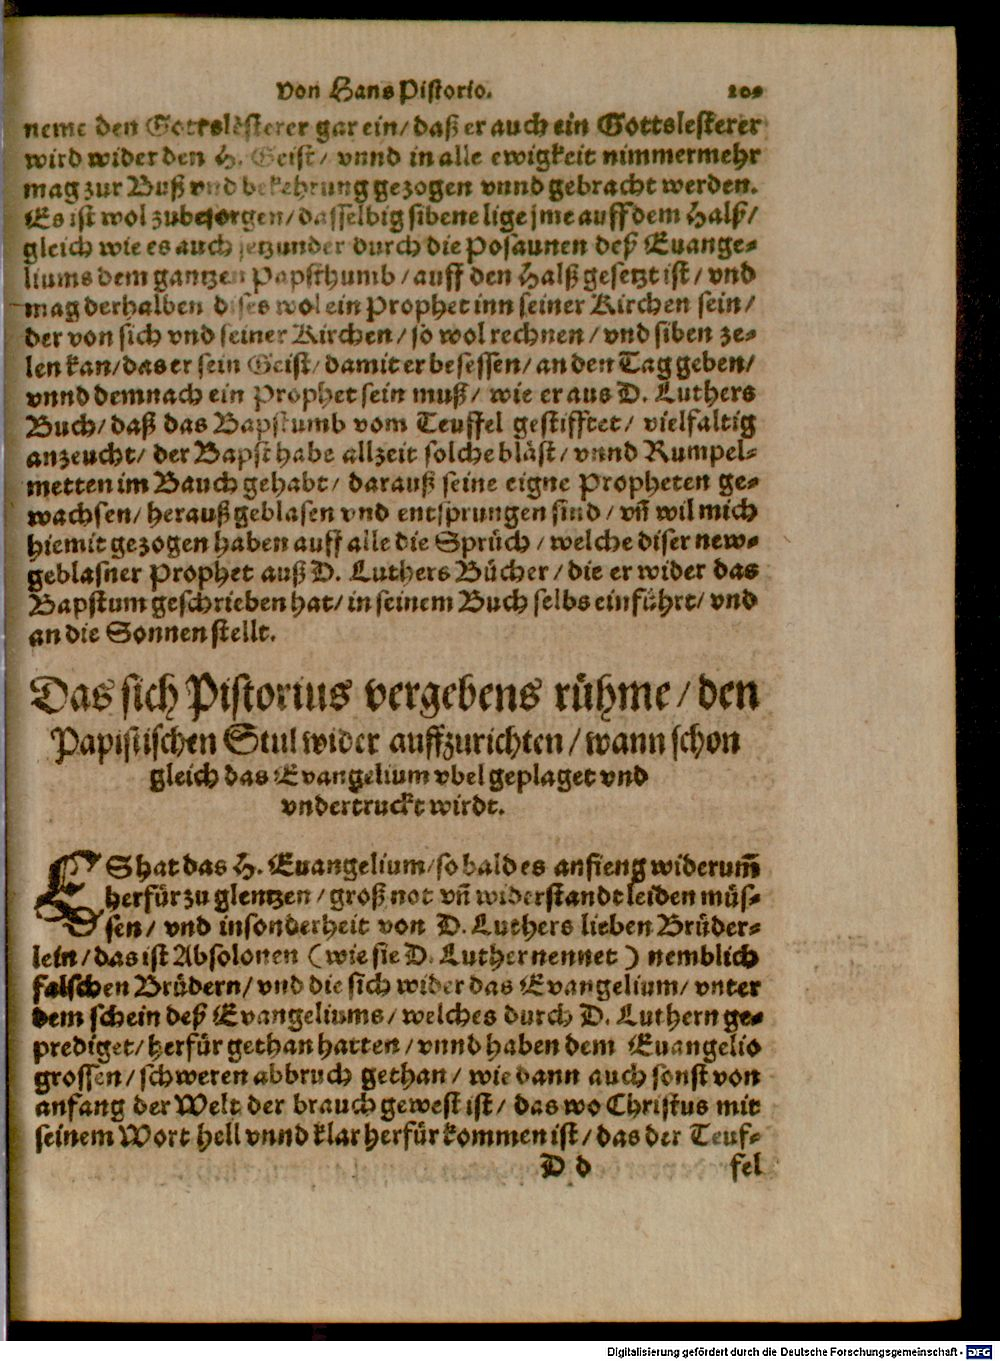 von Hans Pistorio. 209
neme den Gottslesterer gar ein/ daß er auch ein Gottslesterer
wird wider den H. Geist/ vnnd in alle ewigkeit nimmermehr
mag zur Buß vnd bekehrung gezogen vnnd gebracht werden.
Es ist wol zubesorgen/ dasselbig sibene lige jme auff dem Halß/
gleich wie es auch jetzunder durch die Posaunen deß Euange⸗
liums dem gantzen Papsthumb/ auff den Halß gesetzt ist/ vnd
mag derhalben dises wol ein Prophet inn seiner Kirchen sein/
der von sich vnd seiner Kirchen/ so wol rechnen/ vnd siben ze⸗
len kan/ das er sein Geist/ damit er besessen/ an den Tag geben/
vnnd demnach ein Prophet sein muß/ wie er aus D. Luthers
Buch/ daß das Bapstumb vom Teuffel gestifftet/ vielfaltig
anzeucht/ der Bapst habe allzeit solche bläst/ vnnd Rumpel⸗
metten im Bauch gehabt/ darauß seine eigne Propheten ge⸗
wachsen/ herauß geblasen vnd entsprungen sind/ vñ wil mich
hiemit gezogen haben auff alle die Sprüch/ welche diser new⸗
geblasner Prophet auß D. Luthers Bücher/ die er wider das
Bapstum geschrieben hat/ in seinem Buch selbs einführt/ vnd
an die Sonnen stellt.
Das sich Pistorius vergebens rühme/ den
Papistischen Stul wider auffzurichten/ wann schon
gleich das Evangelium vbel geplaget vnd
vndertruckt wirdt.
ES hat das H. Euangelium/ so bald es anfieng widerum̃
herfür zu glentzen/ groß not vñ widerstandt leiden müs⸗
sen/ vnd insonderheit von D. Luthers lieben Brüder⸗
lein/ das ist Absolonen (wie sie D. Luther nennet) nemblich
falschen Brüdern/ vnd die sich wider das Evangelium/ vnter
dem schein deß Evangeliums/ welches durch D. Luthern ge⸗
prediget/ herfür gethan hatten/ vnnd haben dem Euangelio
grossen/ schweren abbruch gethan/ wie dann auch sonst von
anfang der Welt der brauch gewest ist/ das wo Christus mit
seinem Wort hell vnnd klar herfür kommen ist/ das der Teuf⸗
D d fel
Digitalisierung gefördert durch die Deutsche Forschungsgemeinschaft - DFG